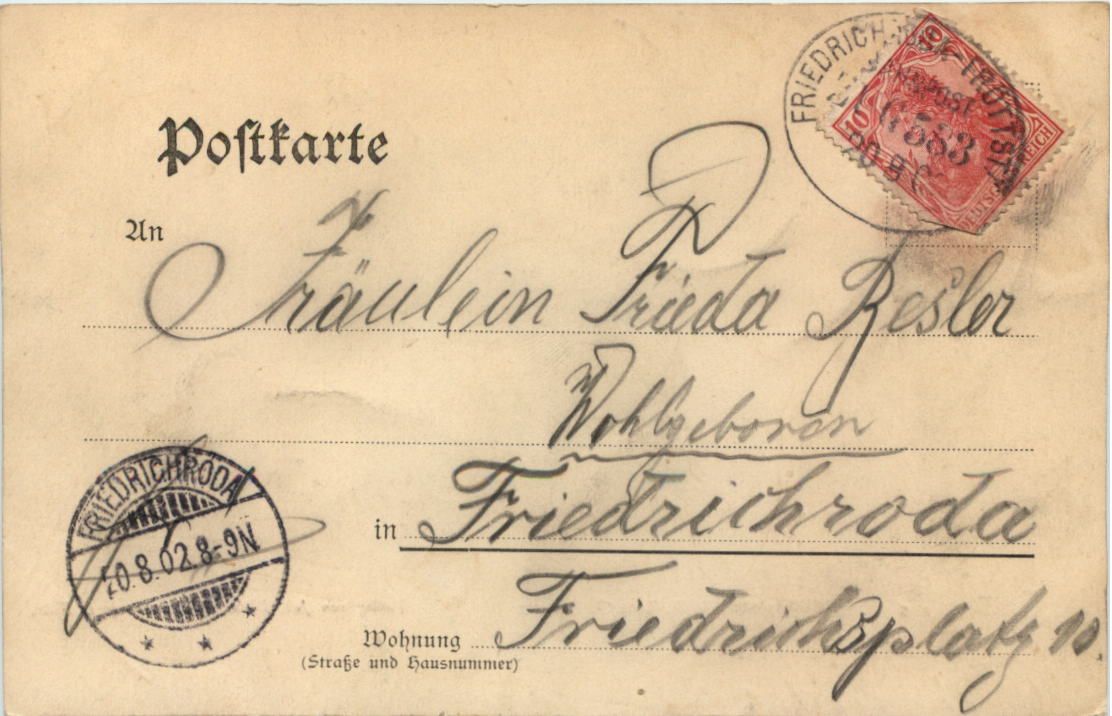 Postkarte
10
FRIEDRICH
TROTTST.
Bahnpost
583
20 8
DEUTSCHES REICH
An
Fräulein Frieda Resler
Wohlgeboren
in Friedrichroda
Friedrichsplatz 10.
Wohnung
(Straße und Hausnummer)
FRIEDRICHRODA
20.8.02.8-9N